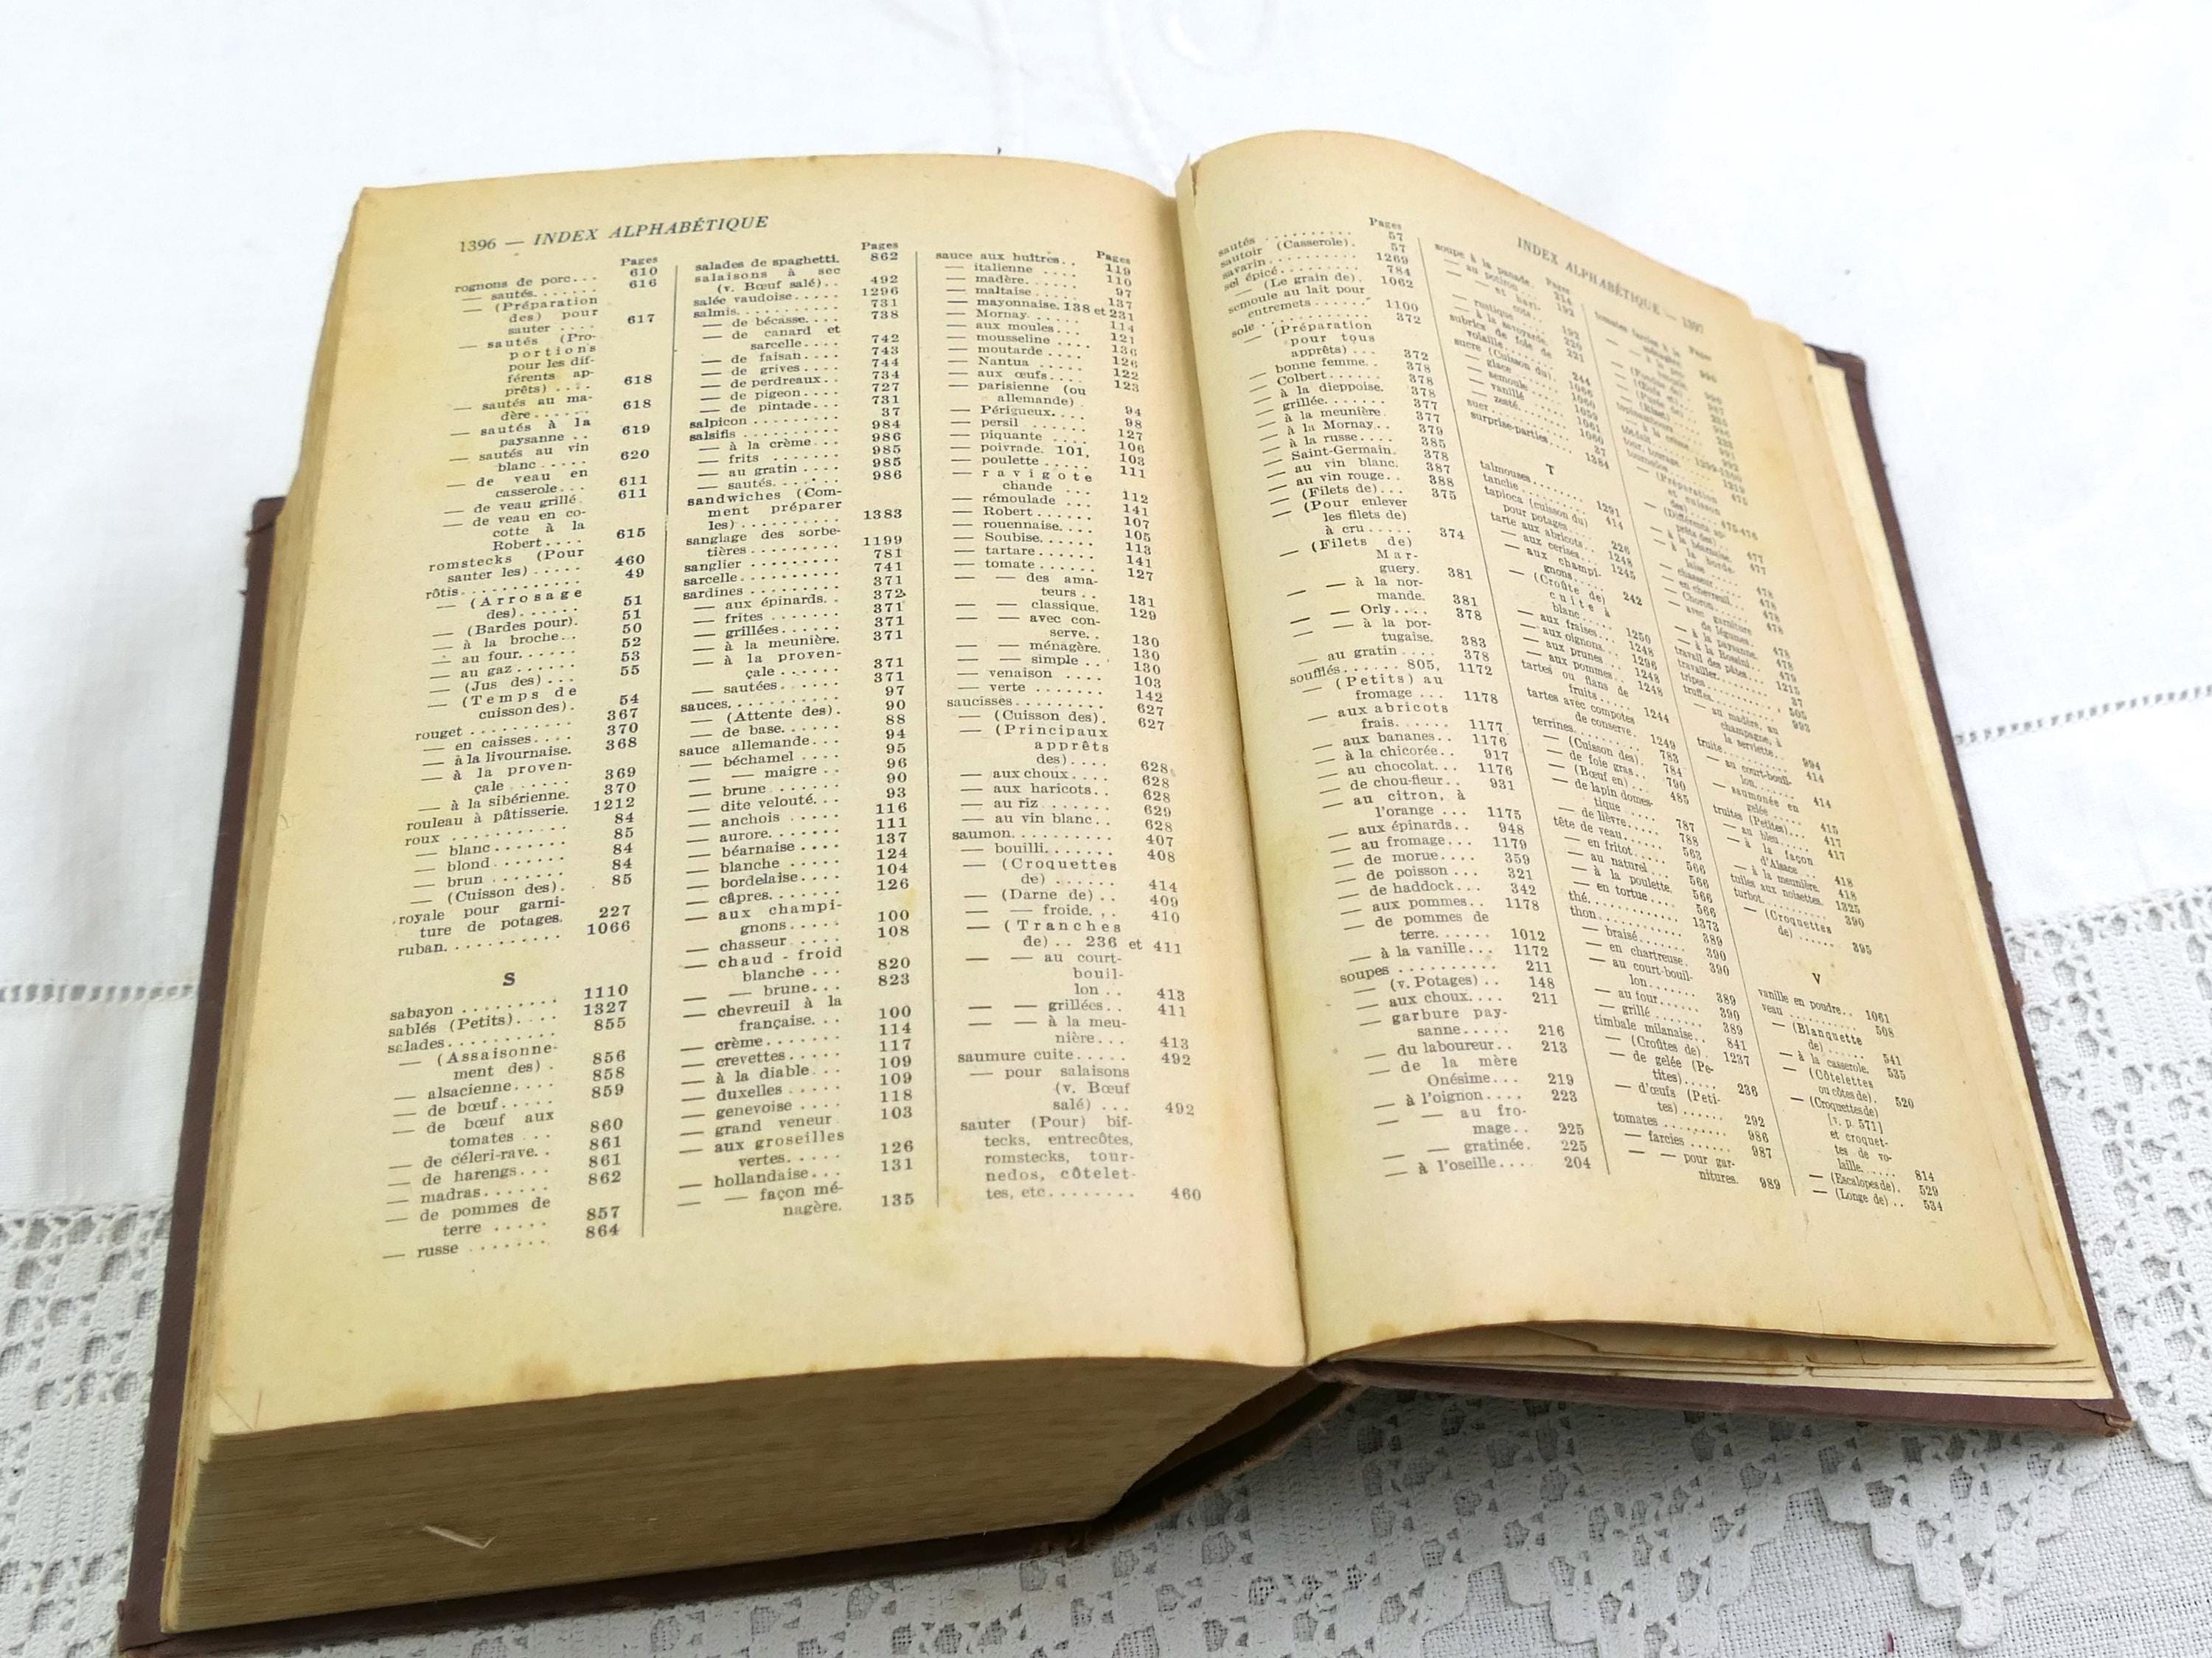 1396 — INDEX ALPHABÉTIQUE
Pages
rognons de porc... 610
— sautés....... 616
— (Préparation
des) pour
sauter .... 617
— sautés (Pro-
portions
pour les dif-
férents ap-
prêts) .... 618
— sautés au ma-
dère...... 618
— sautés à la
paysanne .. 619
— sautés au vin
blanc ..... 620
— de veau en
casserole... 611
— de veau grillé. 611
— de veau en co-
cotte à la
Robert.... 615
romstecks (Pour
sauter les)..... 460
rôtis........... 49
— (Arrosage
des)...... 51
— (Bardes pour). 51
— à la broche... 50
— au four...... 52
— au gaz...... 53
— (Jus des)... 55
— (Temps de
cuisson des). 54
rouget ......... 367
— en caisses.... 370
— à la livournaise. 368
— à la proven-
çale ..... 369
— à la sibérienne. 370
rouleau à pâtisserie. 1212
roux .......... 84
— blanc....... 85
— blond....... 84
— brun ....... 84
— (Cuisson des). 85
royale pour garni-
ture de potages. 227
ruban.......... 1066
S
sabayon ......... 1110
sablés (Petits).... 1327
salades.......... 855
— (Assaisonne-
ment des) . 856
— alsacienne.... 858
— de bœuf..... 859
— de bœuf aux
tomates ... 860
— de céleri-rave.. 861
— de harengs... 861
— madras...... 862
— de pommes de
terre ..... 857
— russe ....... 864
Pages
salades de spaghetti. 862
salaisons à sec
(v. Bœuf salé).. 492
salée vaudoise..... 1296
salmis........... 731
— de bécasse.... 738
— de canard et
sarcelle.... 742
— de faisan.... 743
— de grives.... 744
— de perdreaux.. 734
— de pigeon.... 727
— de pintade.... 731
salpicon ......... 37
salsifis .......... 984
— à la crème... 986
— frits ....... 985
— au gratin .... 985
— sautés...... 986
sandwiches (Com-
ment préparer
les) .......... 1383
sanglage des sorbe-
tières ......... 1199
sanglier ......... 781
sarcelle.......... 741
sardines ......... 371
— aux épinards.. 372
— frites ...... 371
— grillées...... 371
— à la meunière. 371
— à la proven-
çale ..... 371
— sautées...... 371
sauces........... 97
— (Attente des). 90
— de base..... 88
sauce allemande... 94
— béchamel ... 95
— — maigre .. 96
— brune ...... 90
— dite velouté... 93
— anchois ..... 116
— aurore...... 111
— béarnaise .... 137
— blanche ..... 124
— bordelaise.... 104
— câpres...... 126
— aux champi-
gnons..... 100
— chasseur .... 108
— chaud - froid
blanche ... 820
— — brune... 823
— chevreuil à la
française... 100
— crème...... 114
— crevettes..... 117
— à la diable... 109
— duxelles ..... 109
— genevoise .... 118
— grand veneur 103
— aux groseilles
vertes..... 126
— hollandaise... 131
— — façon mé-
nagère. 135
Pages
sauce aux huîtres.. 119
— italienne .... 110
— madère..... 97
— maltaise..... 137
— mayonnaise. 138 et 231
— Mornay..... 114
— aux moules... 121
— mousseline .... 136
— moutarde .... 126
— Nantua ..... 122
— aux œufs.... 123
— parisienne (ou
allemande) 94
— Périgueux.... 98
— persil ...... 127
— piquante .... 106
— poivrade. 101, 103
— poulette ..... 111
— ravigote
chaude ... 112
— rémoulade ... 141
— Robert...... 107
— rouennaise.... 105
— Soubise..... 113
— tartare...... 141
— tomate ...... 127
— — des ama-
teurs .. 131
— — classique. 129
— — avec con-
serve.. 130
— — ménagère. 130
— — simple ... 130
— venaison .... 103
— verte ....... 142
saucisses......... 627
— (Cuisson des). 627
— (Principaux
apprêts
des).... 628
— aux choux.... 628
— aux haricots.. 628
— au riz ...... 629
— au vin blanc.. 628
saumon.......... 407
— bouilli...... 408
— (Croquettes
de) ...... 414
— (Darne de).. 409
— — froide... 410
— (Tranches
de).. 236 et 411
— — au court-
bouil-
lon .. 413
— — grillées.. 411
— — à la meu-
nière... 413
saumure cuite..... 492
— pour salaisons
(v. Bœuf
salé) ... 492
sauter (Pour) bif-
tecks, entrecôtes,
romstecks, tour-
nedos, côtelet-
tes, etc........ 460
INDEX ALPHABÉTIQUE — 1397
Pages
sautés .......... 57
sautoir (Casserole). 57
savarin.......... 1269
sel épicé......... 784
— (Le grain de). 1062
semoule au lait pour
entremets....... 1100
sole ............ 372
— (Préparation
pour tous
apprêts) ... 372
— bonne femme.. 378
— Colbert...... 378
— à la dieppoise. 378
— grillée...... 377
— à la meunière. 377
— à la Mornay.. 379
— à la russe.... 385
— Saint-Germain. 378
— au vin blanc. 387
— au vin rouge.. 388
— (Filets de)... 375
— (Pour enlever
les filets de)
à cru .... 374
— (Filets de)
Mar-
guery. 381
— — à la nor-
mande. 381
— — Orly.... 378
— — à la por-
tugaise. 383
— au gratin .... 378
soufflés...... 805, 1172
— (Petits) au
fromage ... 1178
— aux abricots
frais...... 1177
— aux bananes.. 1176
— à la chicorée.. 917
— au chocolat... 1176
— de chou-fleur.. 931
— au citron, à
l'orange ... 1175
— aux épinards.. 948
— au fromage... 1179
— de morue.... 359
— de poisson... 321
— de haddock... 342
— aux pommes.. 1178
— de pommes de
terre...... 1012
— à la vanille... 1172
soupes .......... 211
— (v. Potages) .. 148
— aux choux.... 211
— garbure pay-
sanne ..... 216
— du laboureur.. 213
— de la mère
Onésime... 219
— à l'oignon.... 223
— — au fro-
mage.. 225
— — gratinée. 225
— à l'oseille.... 204
soupe à la panade. 214
surprise-parties.... 1384
T
talmouses........ 1291
tanche .......... 414
tapioca (cuisson du)
pour potages.... 226
tarte aux abricots.. 1248
— aux cerises... 1245
— aux champi-
gnons.... 242
— (Croûte de)
cuite à
blanc.... 1250
— aux fraises... 1248
— aux oignons... 1296
— aux prunes... 1248
— aux pommes.. 1248
tartes ou flans de
fruits ........ 1244
tartes avec compotes
de conserve.. 1249
terrines.......... 783
— (Cuisson des). 784
— de foie gras.. 790
— (Bœuf en)... 485
— de lapin domes-
tique ..... 787
— de lièvre..... 788
tête de veau...... 563
— en fritot.... 566
— au naturel... 566
— à la poulette. 566
— en tortue.... 566
thé............. 1373
thon............ 389
— braisé...... 390
— en chartreuse. 390
— au court-bouil-
lon....... 389
— au four..... 390
— grillé ...... 389
timbale milanaise.. 841
— (Croûtes de). 1237
— de gelée (Pe-
tites)..... 236
— d'œufs (Peti-
tes)...... 292
tomates ......... 986
— farcies ...... 987
— — pour gar-
nitures. 989
travail des pâtes... 1215
travailler......... 37
tripes........... 505
truffes........... 993
— au madère, au
champagne, à
la serviette.. 994
truite........... 414
— au court-bouil-
lon....... 414
— saumonée en
gelée..... 415
truites (Petites).... 417
— au bleu..... 417
— à la façon
d'Alsace... 418
— à la meunière. 418
tuiles aux noisettes. 1325
turbot........... 390
— (Croquettes
de) ...... 395
V
vanille en poudre.. 1061
veau ........... 508
— (Blanquette
de) ...... 541
— à la casserole. 535
— (Côtelettes
ou côtes de). 520
— (Croquettes de)
[v. p. 571]
et croquet-
tes de vo-
laille..... 814
— (Escalopes de). 529
— (Longe de)... 534